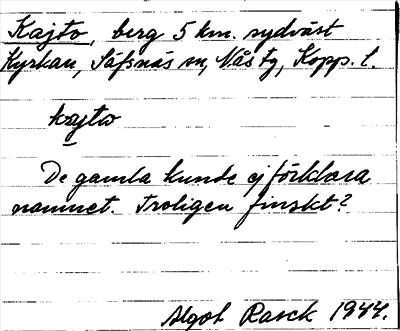 Kajto, berg 5 km. sydväst
Kyrkan, Säfsnäs sn, Nås tg, Kopp. l.
kajto
De gamla kunde ej förklara
namnet. Troligen finskt?
Algot Rasck 1944.